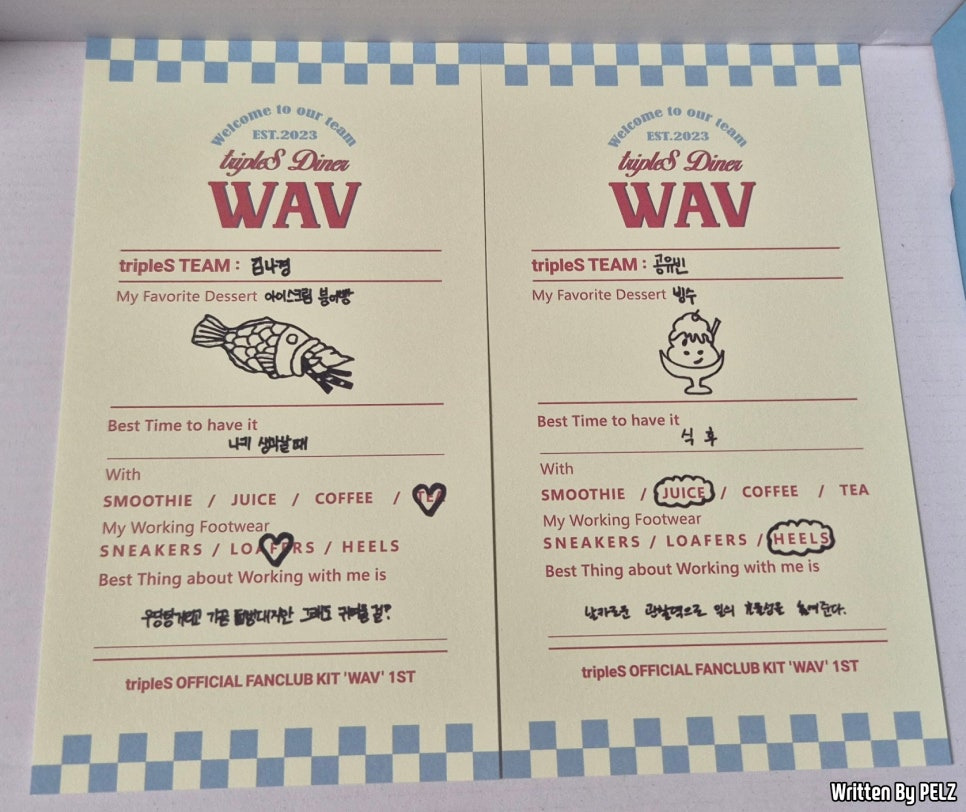 Welcome to our team
EST.2023
tripleS Diner
WAV
tripleS TEAM : 김나경
My Favorite Dessert 아이스크림 붕어빵
Best Time to have it
나키 생각날 때
With
SMOOTHIE / JUICE / COFFEE / TEA
My Working Footwear
SNEAKERS / LOAFERS / HEELS
Best Thing about Working with me is
우당탕거리고 가끔 띵땡대지만 그래도 귀여울 걸?
tripleS OFFICIAL FANCLUB KIT 'WAV' 1ST
Welcome to our team
EST.2023
tripleS Diner
WAV
tripleS TEAM : 공유빈
My Favorite Dessert 빙수
Best Time to have it
식 후
With
SMOOTHIE / JUICE / COFFEE / TEA
My Working Footwear
SNEAKERS / LOAFERS / HEELS
Best Thing about Working with me is
날카로운 관찰력으로 일의 효율성을 높여준다.
tripleS OFFICIAL FANCLUB KIT 'WAV' 1ST
Written By PELZ